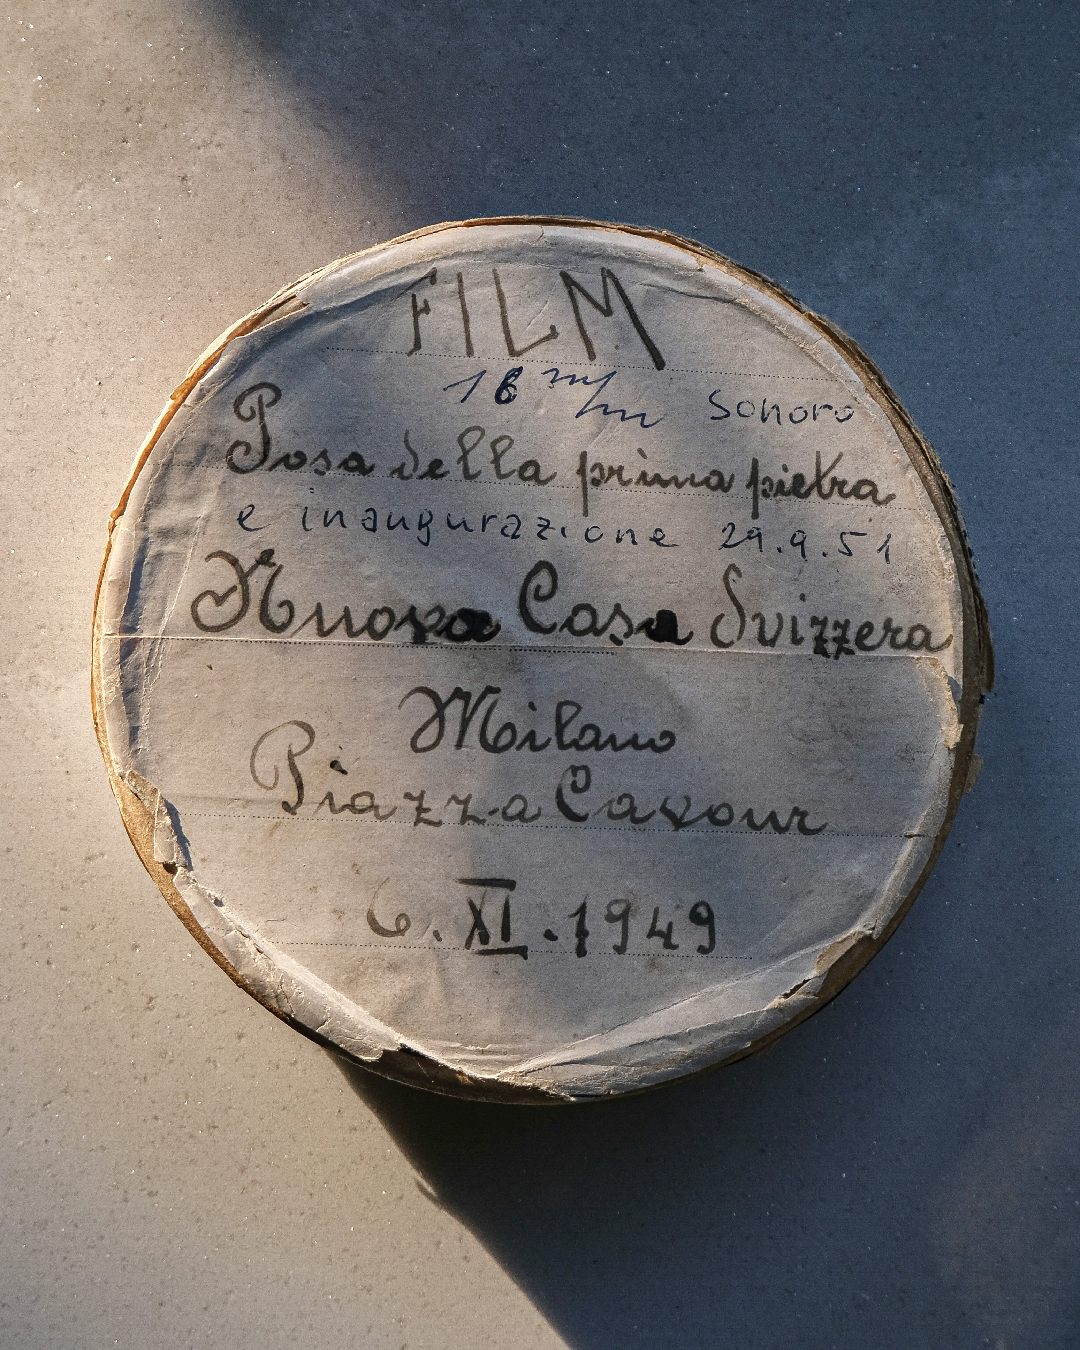 FILM
16 m/m sonoro
Posa della prima pietra
e inaugurazione 29.9.51
Nuova Casa Svizzera
Milano
Piazza Cavour
6.XI.1949